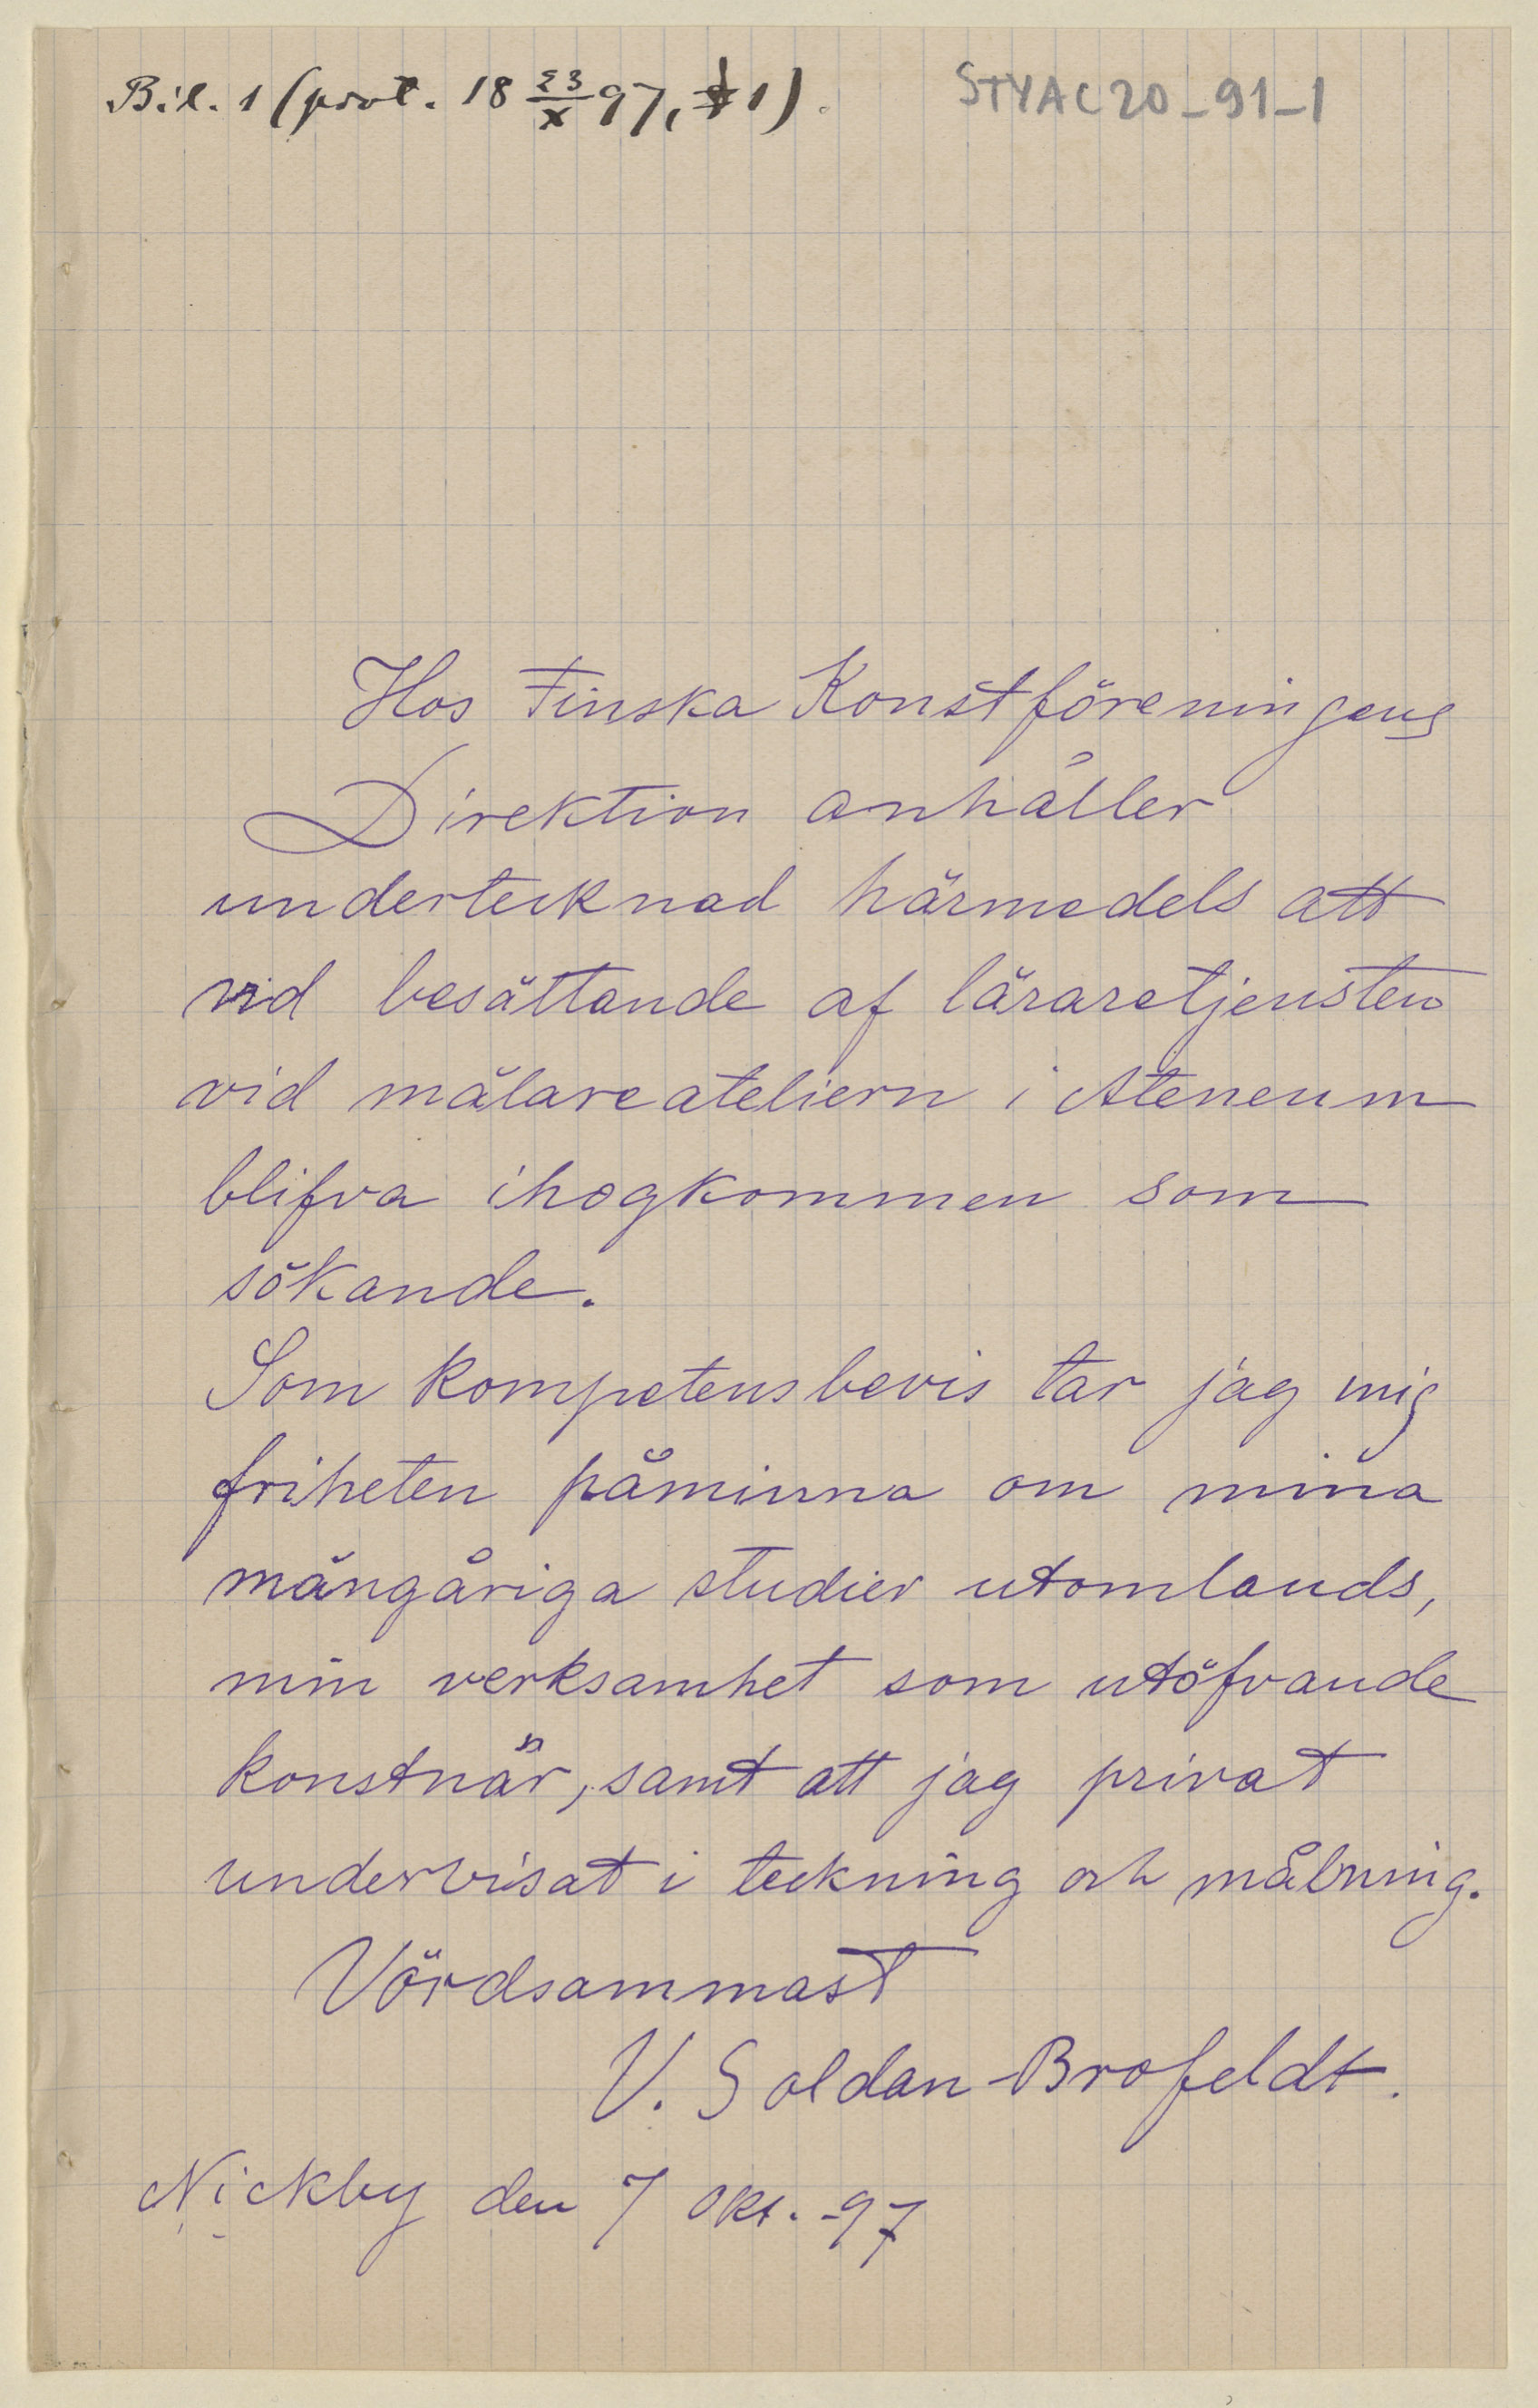 Bil. 1 (prot. 18 23/X 97, § 1).
STYAC20_91_1
Hos Finska Konstföreningens
Direktion anhåller
undertecknad härmedels att
vid besättande af läraretjensten
vid målareateliern i Ateneum
blifva ihogkommen som
sökande.
Som kompetensbevis tar jag mig
friheten påminna om mina
mångåriga studier utomlands,
min verksamhet som utöfvande
konstnär, samt att jag privat
undervisat i teckning och målning.
Vördsammast
V. Soldan-Brofeldt.
Nickby den 7 Okt. -97